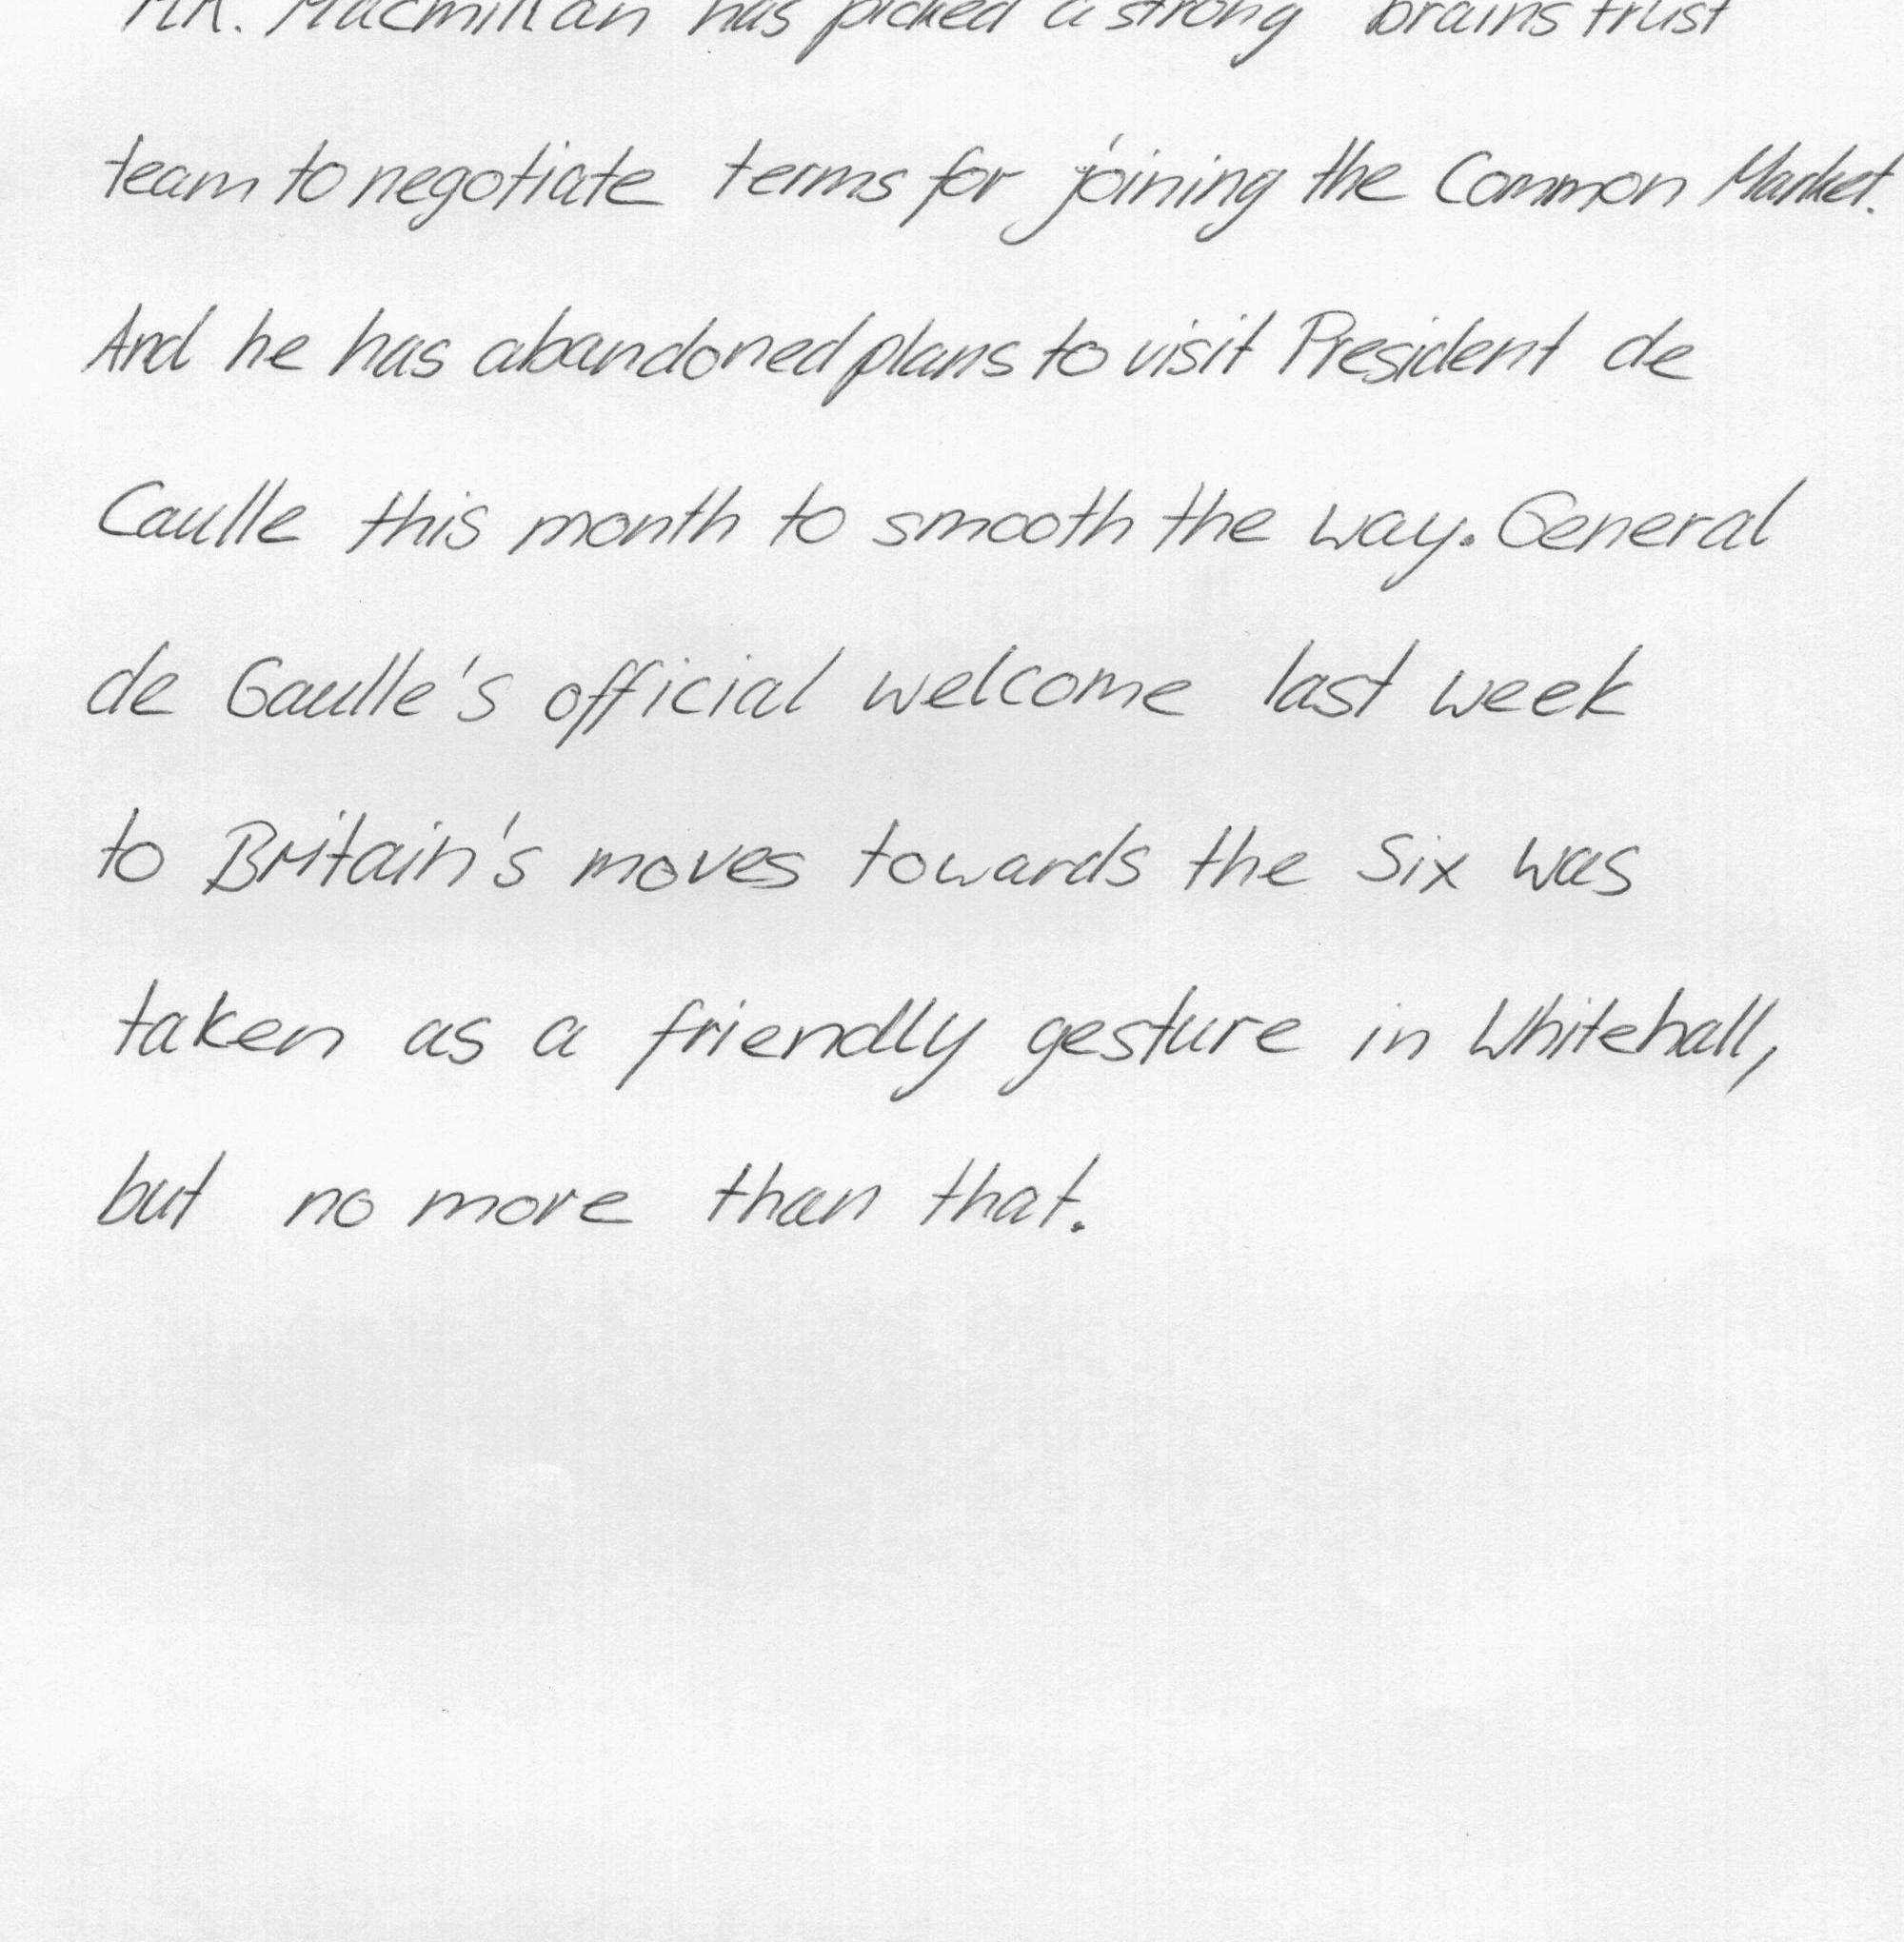 MR. Macmillan has picked a strong brains trust
team to negotiate terms for joining the Common Market.
And he has abandoned plans to visit President de
Caulle this month to smooth the way. General
de Gaulle's official welcome last week
to Britain's moves towards the Six was
taken as a friendly gesture in Whitehall,
but no more than that.